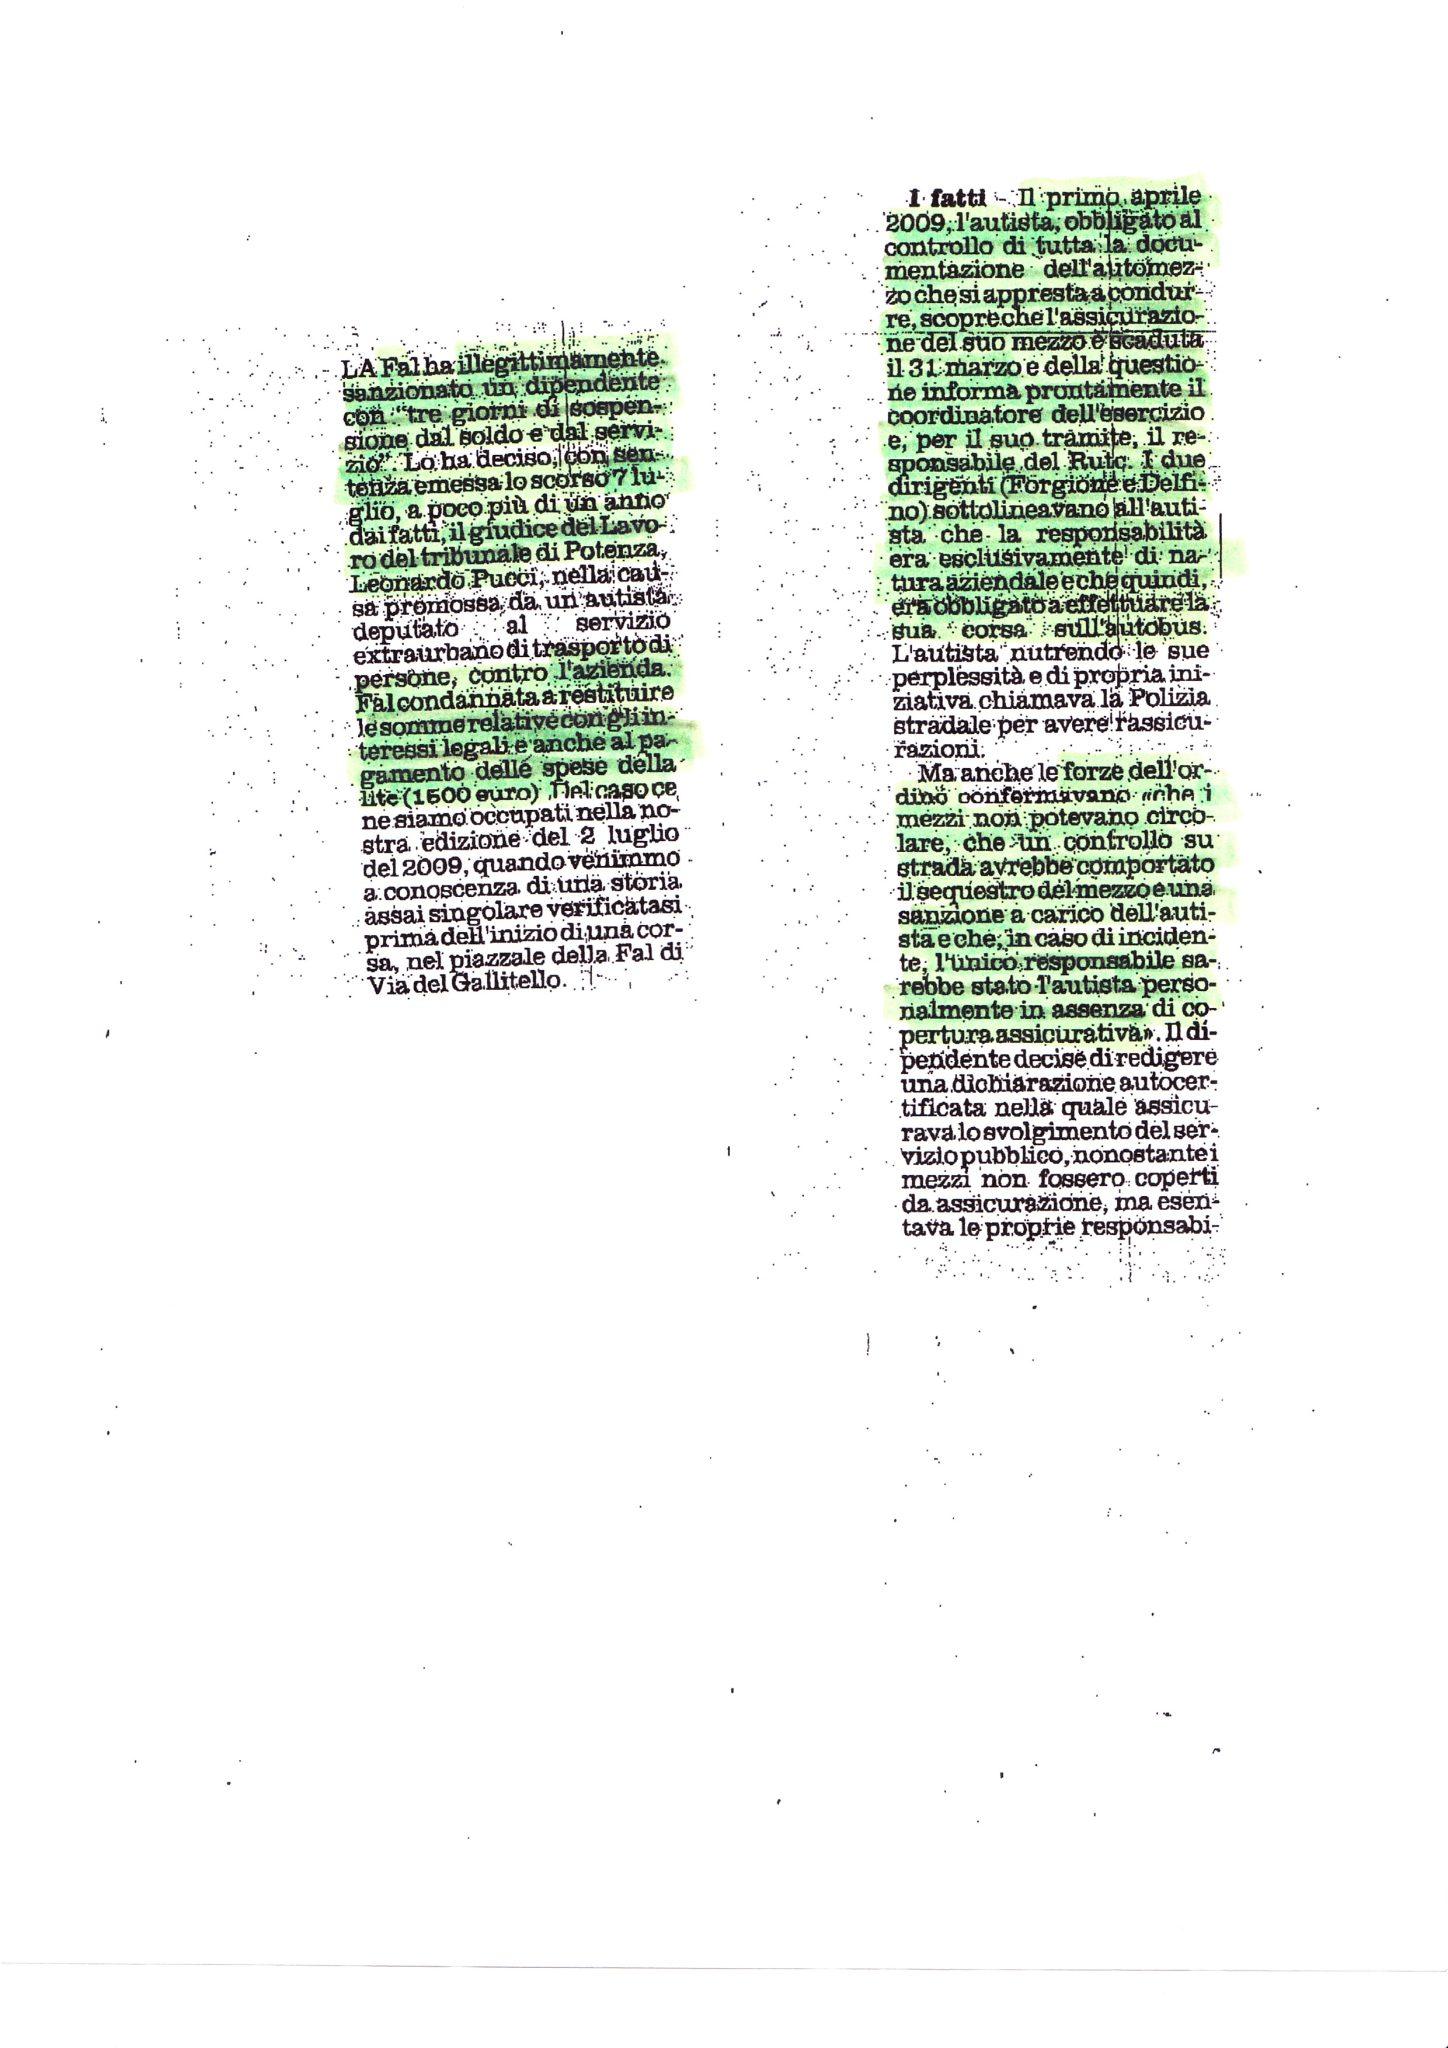 LA Fal ha illegittimamente
sanzionato un dipendente
con "tre giorni di sospen-
sione dal soldo e dal servi-
zio". Lo ha deciso, con sen-
tenza emessa lo scorso 7 lu-
glio, a poco più di un anno
dai fatti, il giudice del Lavo-
ro del tribunale di Potenza,
Leonardo Pucci, nella cau-
sa promossa da un autista
deputato al servizio
extraurbano di trasporto di
persone, contro l'azienda.
Fal condannata a restituire
le somme relative con gli in-
teressi legali e anche al pa-
gamento delle spese della
lite (1500 euro). Del caso ce
ne siamo occupati nella no-
stra edizione del 2 luglio
del 2009, quando venimmo
a conoscenza di una storia
assai singolare verificatasi
prima dell'inizio di una cor-
sa, nel piazzale della Fal di
Via del Gallitello.
I fatti - Il primo aprile
2009, l'autista, obbligato al
controllo di tutta la docu-
mentazione dell'automez-
zo che si appresta a condur-
re, scopre che l'assicurazio-
ne del suo mezzo è scaduta
il 31 marzo e della questio-
ne informa prontamente il
coordinatore dell'esercizio
e, per il suo tramite, il re-
sponsabile del Rutc. I due
dirigenti (Forgione e Delfi-
no) sottolineavano all'auti-
sta che la responsabilità
era esclusivamente di na-
tura aziendale e che quindi,
era obbligato a effettuare la
sua corsa sull'autobus.
L'autista nutrendo le sue
perplessità e di propria ini-
ziativa chiamava la Polizia
stradale per avere rassicu-
razioni.
Ma anche le forze dell'or-
dino confermavano «che i
mezzi non potevano circo-
lare, che un controllo su
strada avrebbe comportato
il sequestro del mezzo e una
sanzione a carico dell'auti-
sta e che, in caso di inciden-
te, l'unico responsabile sa-
rebbe stato l'autista perso-
nalmente in assenza di co-
pertura assicurativa». Il di-
pendente decise di redigere
una dichiarazione autocer-
tificata nella quale assicu-
rava lo svolgimento del ser-
vizio pubblico, nonostante i
mezzi non fossero coperti
da assicurazione, ma esen-
tava le proprie responsabi-